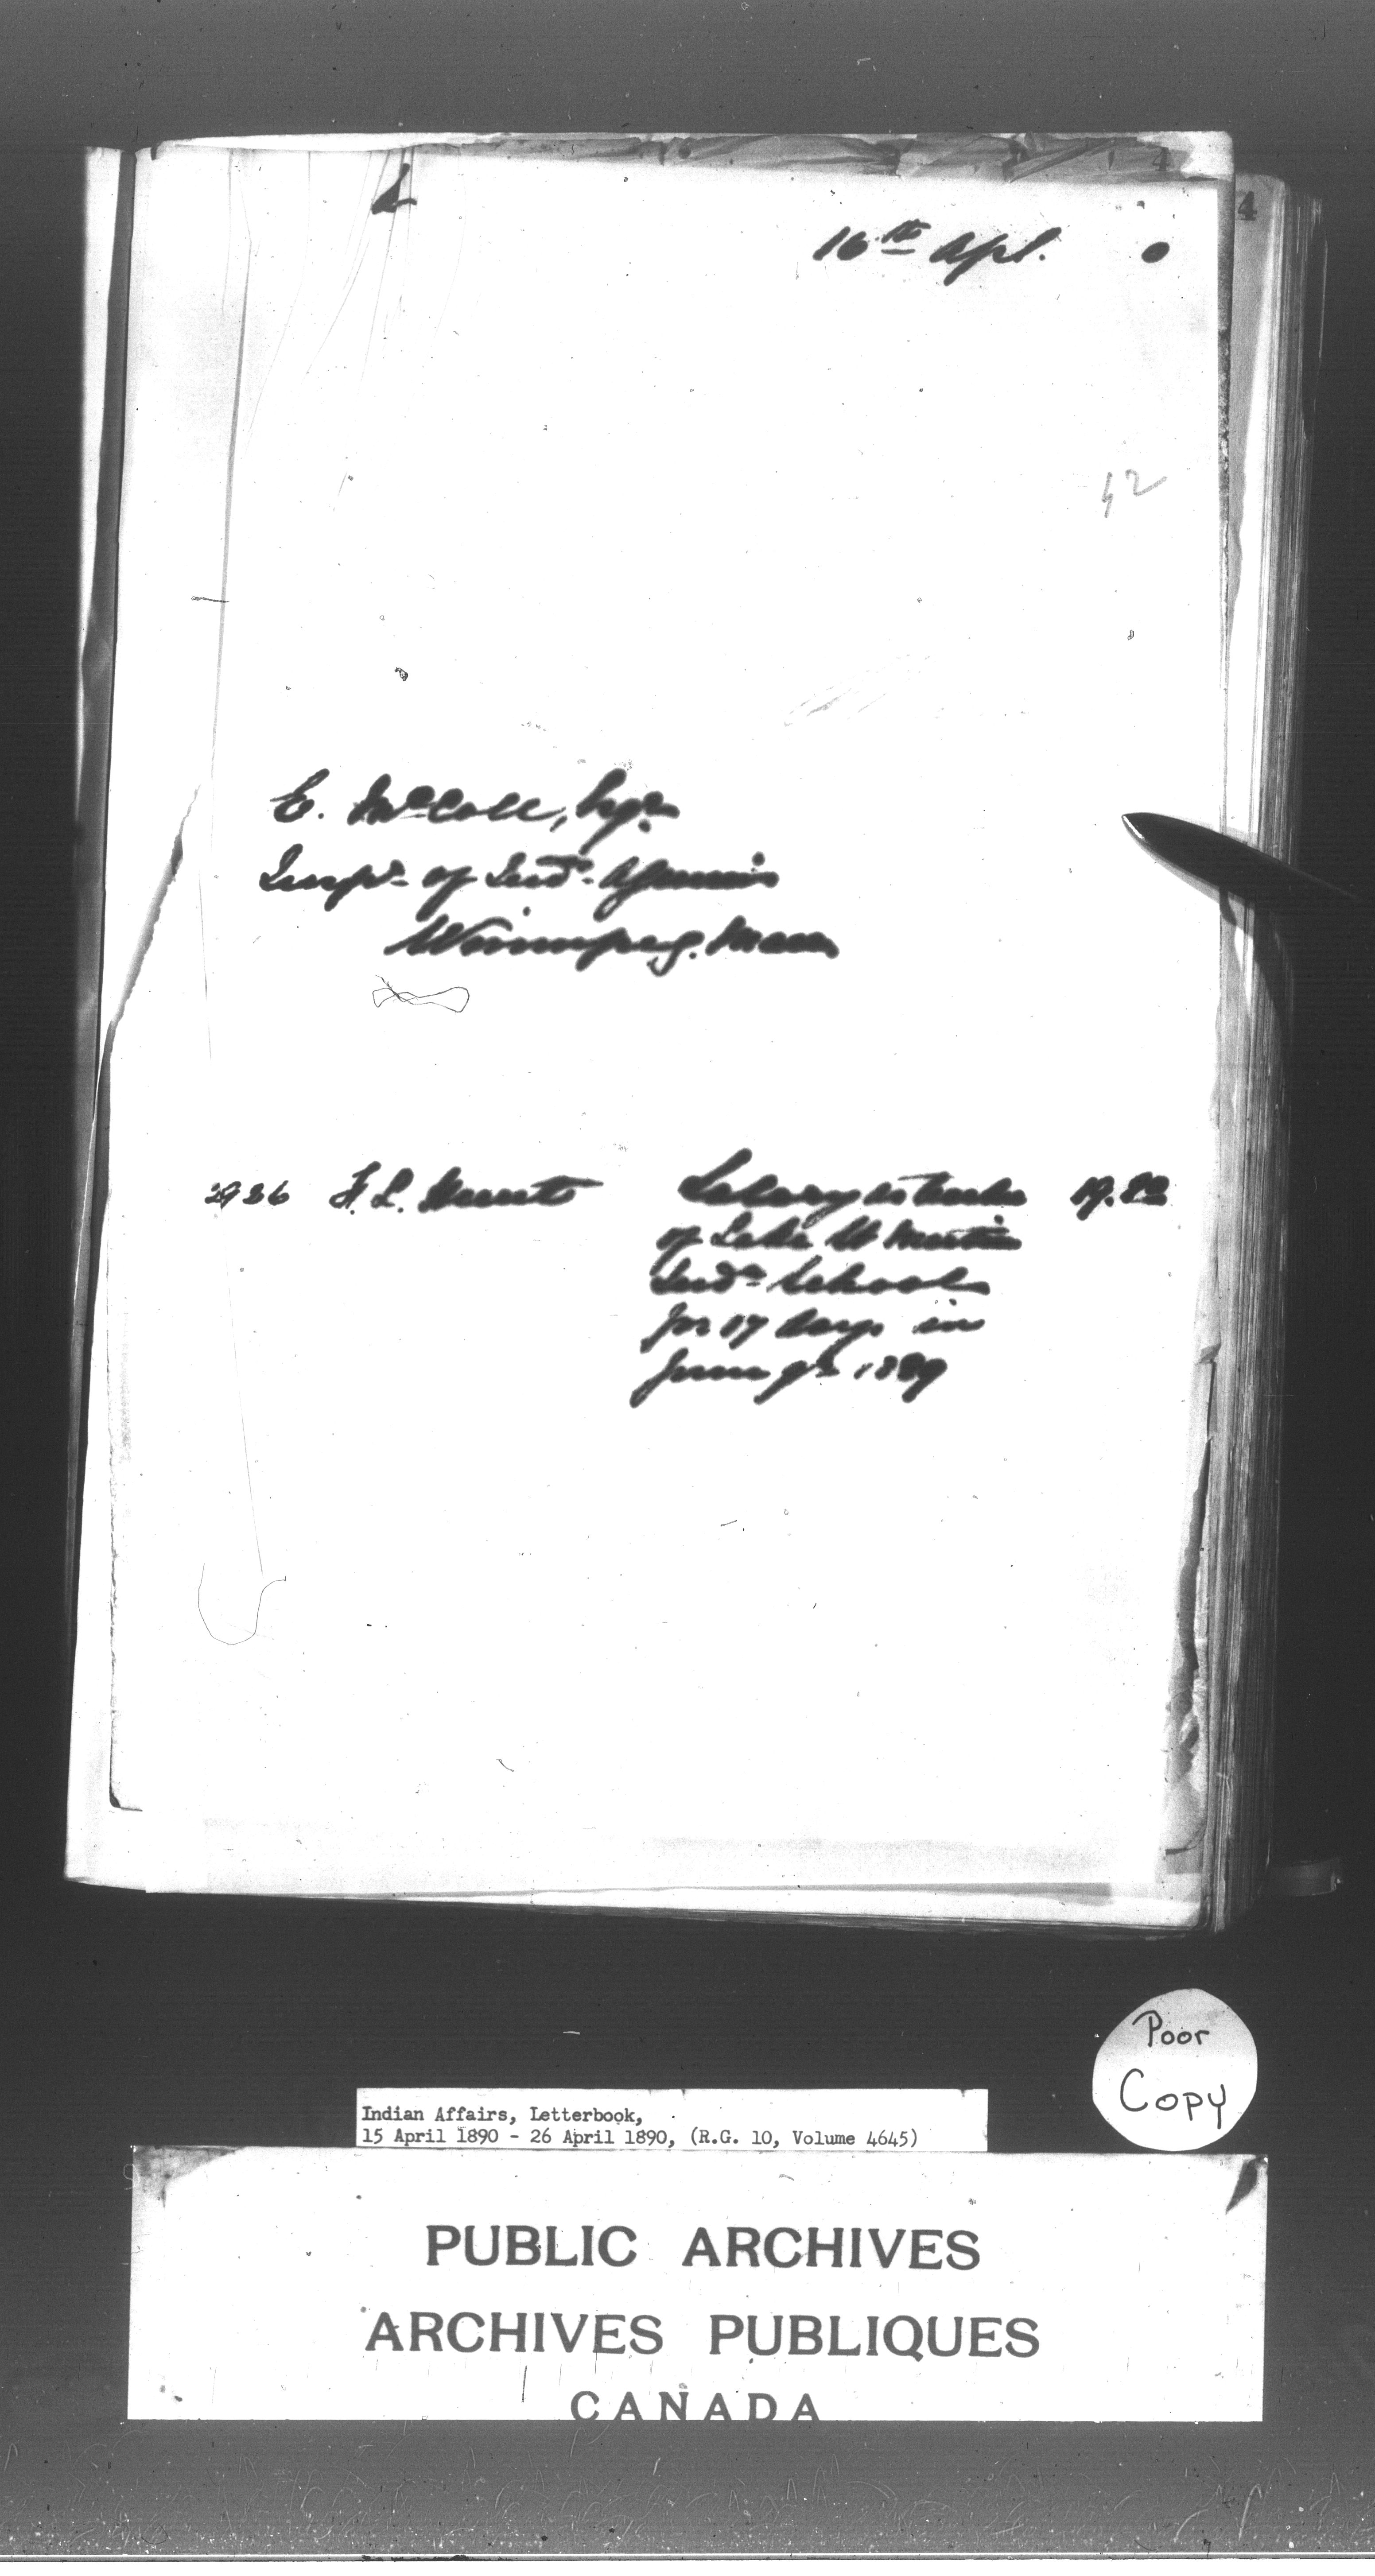 4
4
L
16th Apl. 0
42
E. McColl, Esqr.
Inspr. of Indn. Agencies
Winnipeg. Man
2986 F. L. Salary as teacher 19.82
of Lake St Martin
Indn School
for 17 days in
June qr 1889
Poor
Copy
Indian Affairs, Letterbook,
15 April 1890 - 26 April 1890, (R.G. 10, Volume 4645)
PUBLIC ARCHIVES
ARCHIVES PUBLIQUES
CANADA